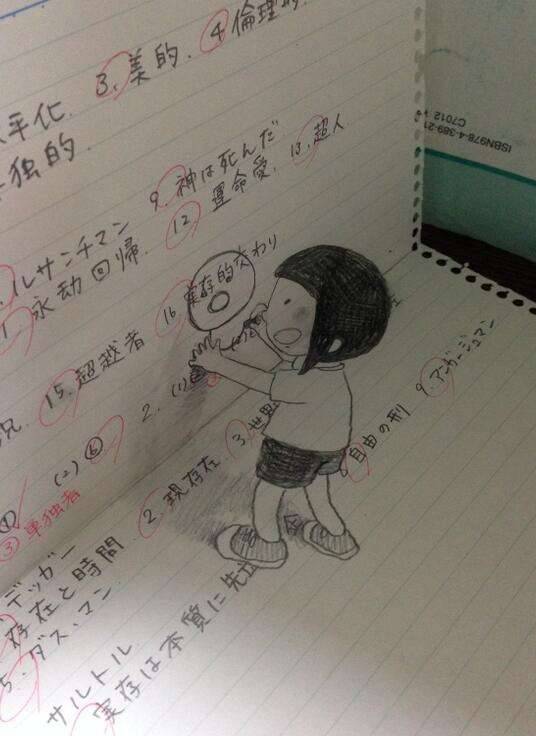 3. 美的. ④倫理的
水平化.
単独的
9. 神は死んだ
ルサンチマン
12. 運命愛. 13. 超人
永劫回帰.
15. 超越者 16. 実存的交わり
① (2) ⑥ 2. (1)
③ 単独者
2. 現存在 3. 世界
デッガー
存在と時間
5. ダス・マン
自由の刑 9. アンガージュマン
サルトル
実存は本質に先立
ISBN978-4-389-21
C7012